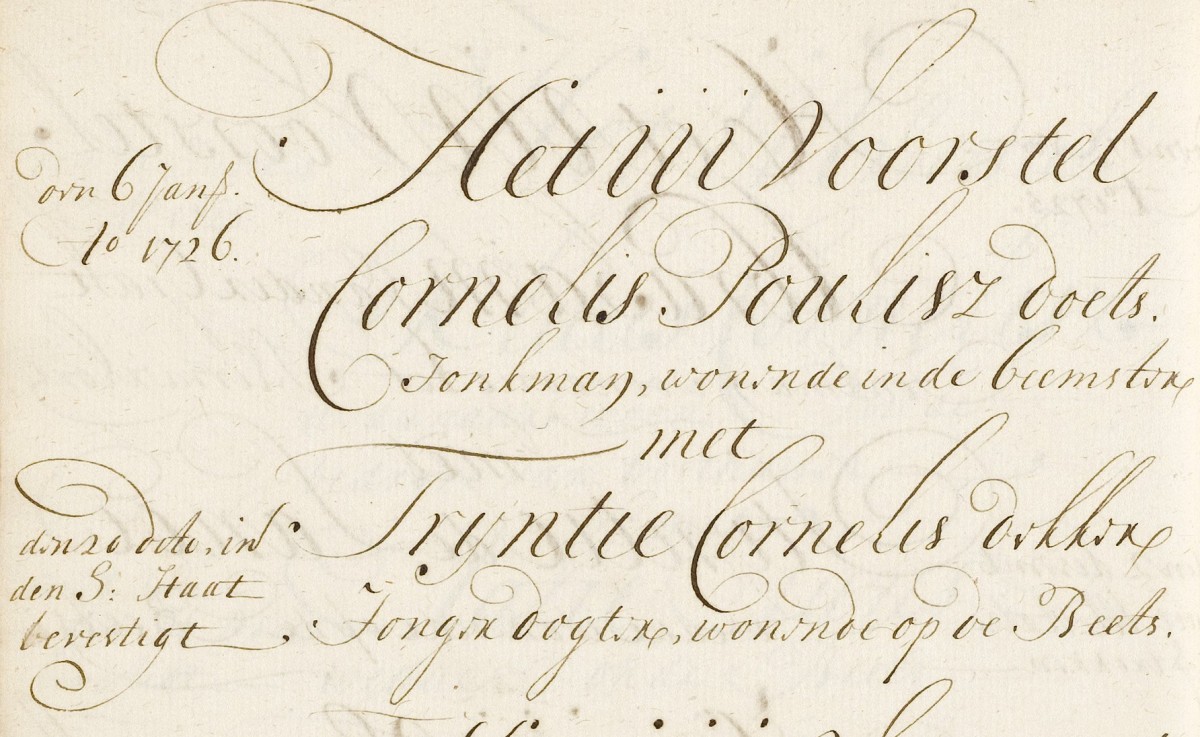 Het iii Voorstel
den 6 Jan:
Ao 1726.
Cornelis Poulisz Doets.
Jonkman, wonende in de beemster
met
Tryntie Cornelis dekker
den 20 dito, in
den H: Staat
bevestigt
Jonger dogter, wonende op de Beets.